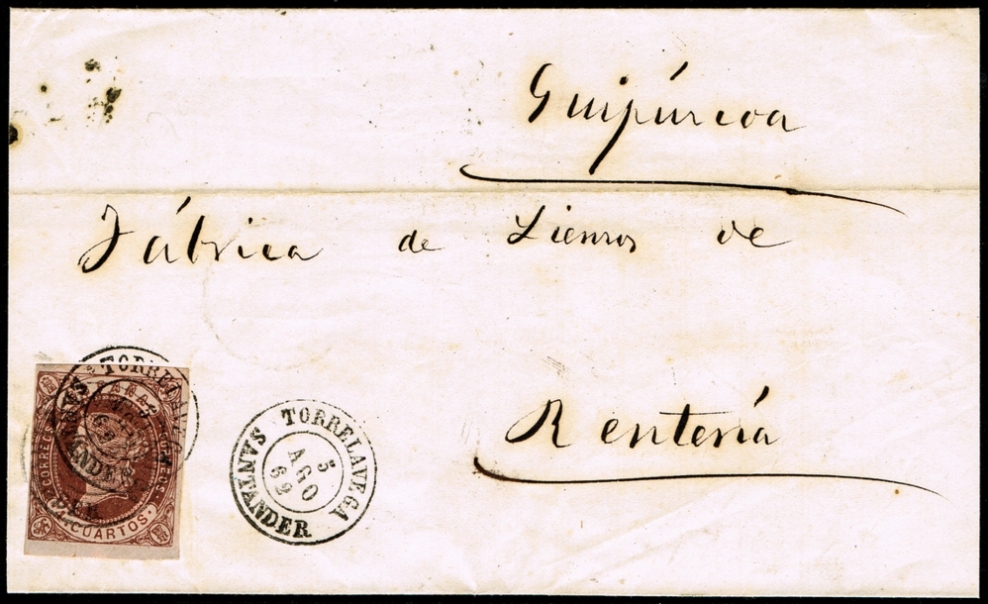 Guipúzcoa
Fábrica de Lienzos de
Rentería
TORRELAVEGA
5
AGO
62
SANTANDER
TORRELAVEGA
SANTANDER
CUARTOS.